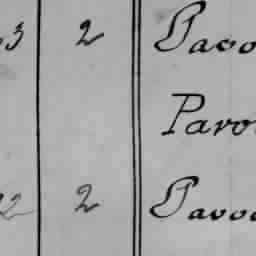 3 2 Pavo
Paro
2 2 Pavo